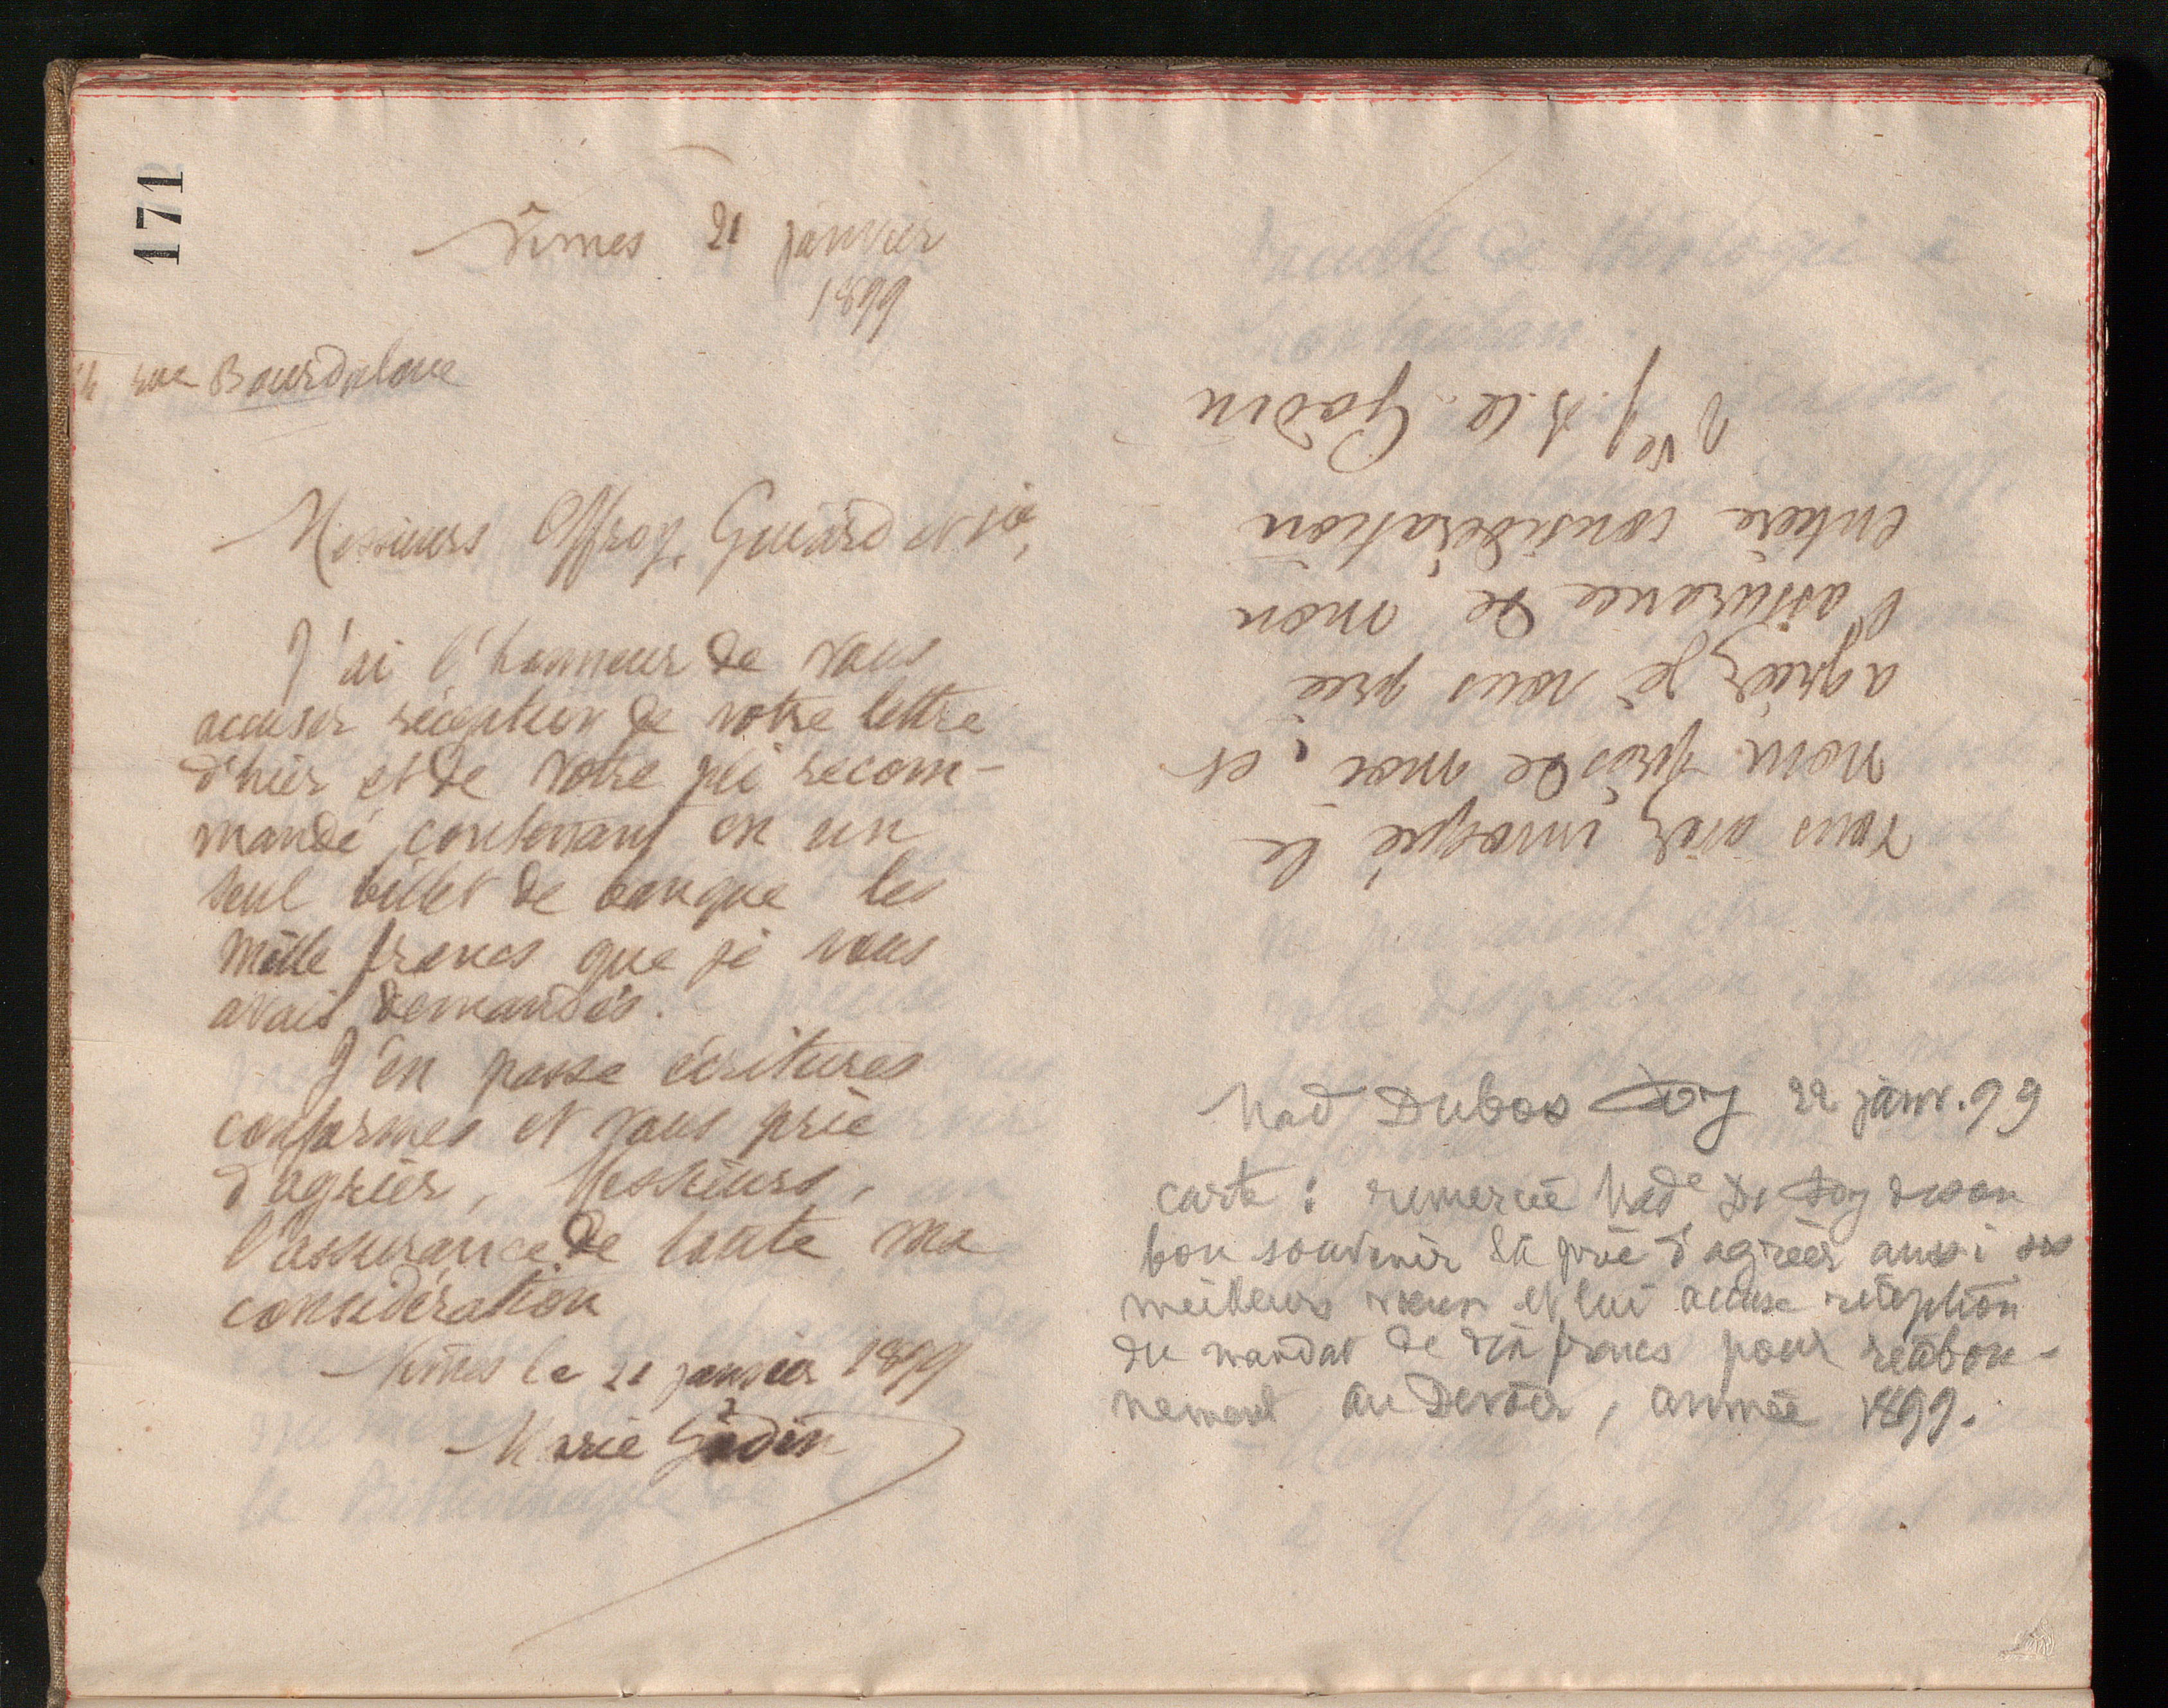 171
Nîmes 21 janvier
1899
rue Bourdaloue
Messieurs Offroy, Guiard et Cie,
J'ai l'honneur de vous
accuser réception de votre lettre
d'hier et de votre pli recom-
mandé contenant en un
seul billet de banque les
mille francs que je vous
avais demandés.
J'en passe écritures
conformes et vous prie
d'agréer, Messieurs,
l'assurance de toute ma
considération
Nîmes le 21 janvier 1899
Marie Godin
vous avez invoqué le
nom près de moi, et
agréez je vous prie
l'assurance de mon
entière considération
Vve J. B. A. Godin
Mad Dubos 22 janv. 99
carte : remercie Made D. de son
bon souvenir la prie d'agréer aussi ses
meilleurs vœux et lui accuse réception
du mandat de dix francs pour réabon-
nement au Devoir, année 1899.